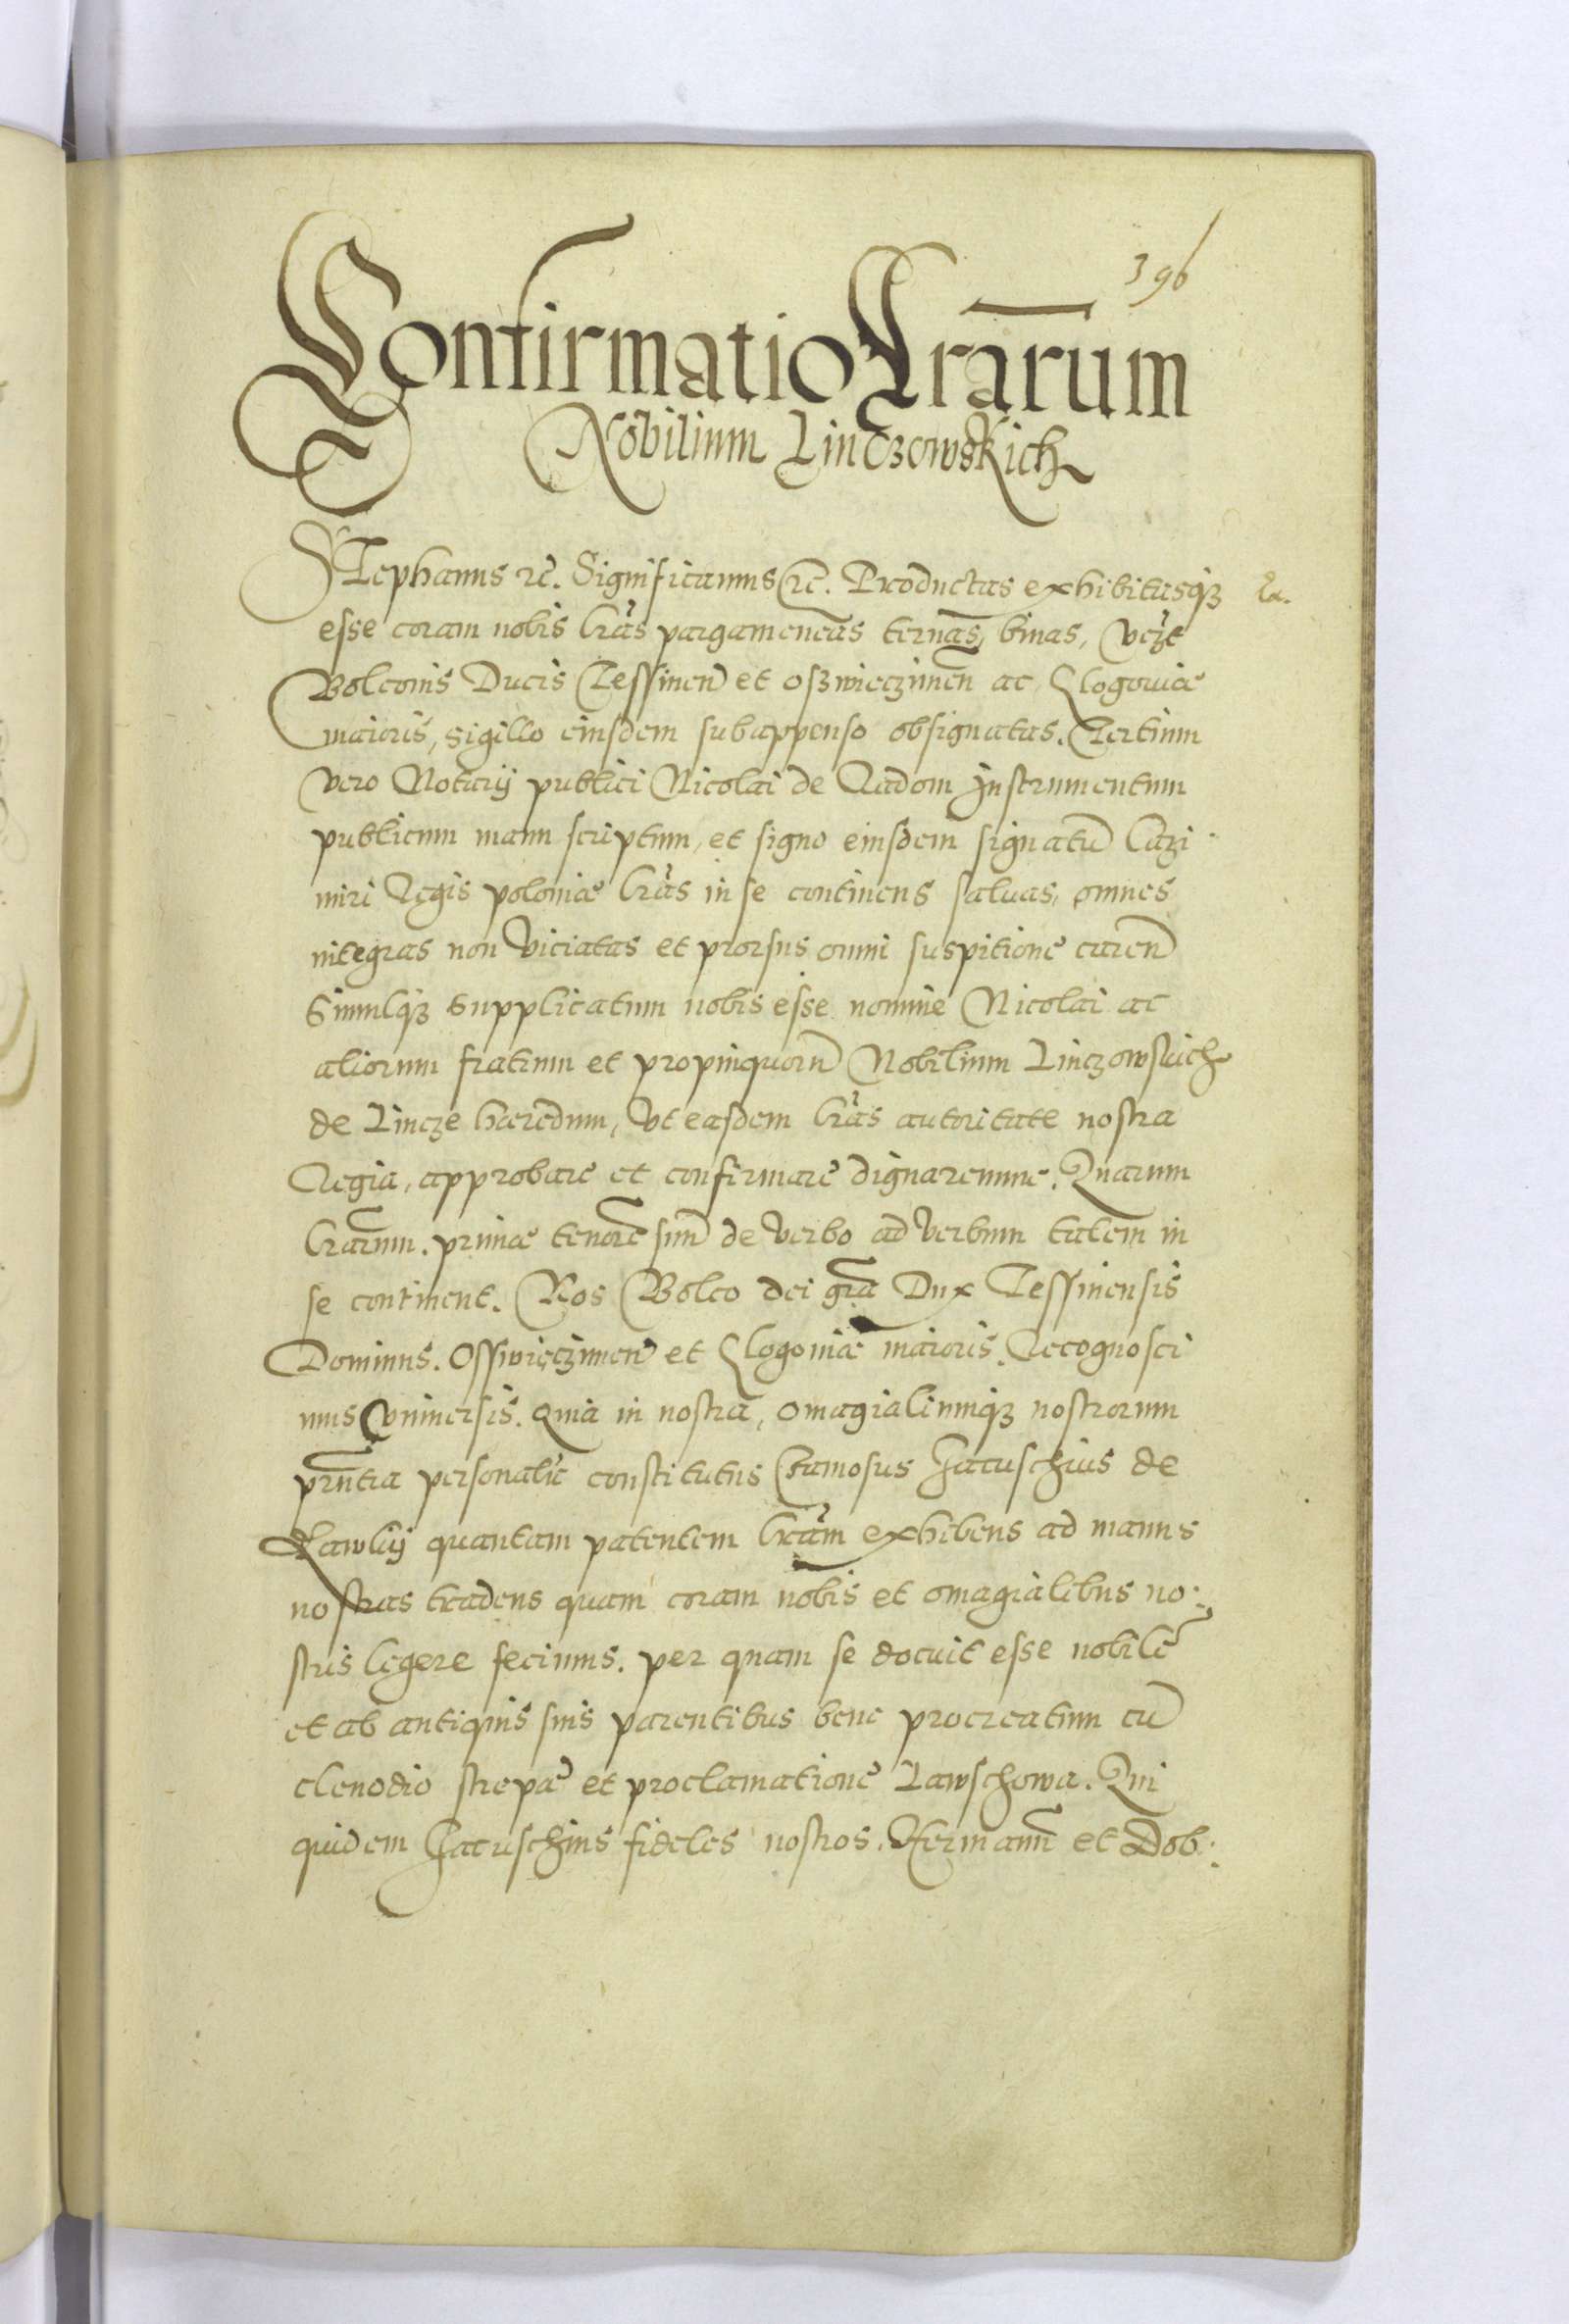 396
Confirmatio Lrarum
Nobilium Linczowskich
Stephanus etc. Significamus etc. Productas exhibitasq3
esse coram nobis lras pargameneas ternas, binas, vcz
Bolconis Ducis Tessinen et oszwieczimen ac Glogouiae
maioris, sigillo eiusdem subappenso obsignatas. Tertium
vero Notarij publici Nicolai de Radom Instrumentum
publicum manu scriptum, et signo eiusdem signatu Cazi
miri Regis poloniae lras in se continens saluas, omnes
integras non viciatas et prorsus omni suspitione caren
Simulq3 supplicatum nobis esse nomine Nicolai ac
aliorum fratrum et propinquoru Nobilium Linczowskich
de Lincze haeredum, vt easdem lras autoritate nostra
Regia, approbare et confirmare dignaremur. Quarum
lrarum. primae tenore suu de verbo ad verbum talem in
se continent. Nos Bolco dei gra Dux Tessinensis
Dominus. Osswieczimen et Glogouiae maioris. Recognosci
mus vniuersis. Quia in nostra, omagialiumq3 nostrorum
prntia personalr constitutus famosus Jacuschius de
Rawky quantam patentem lram exhibens ad manus
nostras tradens quam coram nobis et omagialibus no:
stris legere fecimus. per quam se docuit esse nobile
et ab antiquis suis parentibus bene procreatum cu
clenodio strepae et proclamatione Lawschowa. Qui
quidem Jacuschius fideles nostros. Hermann et Dob: